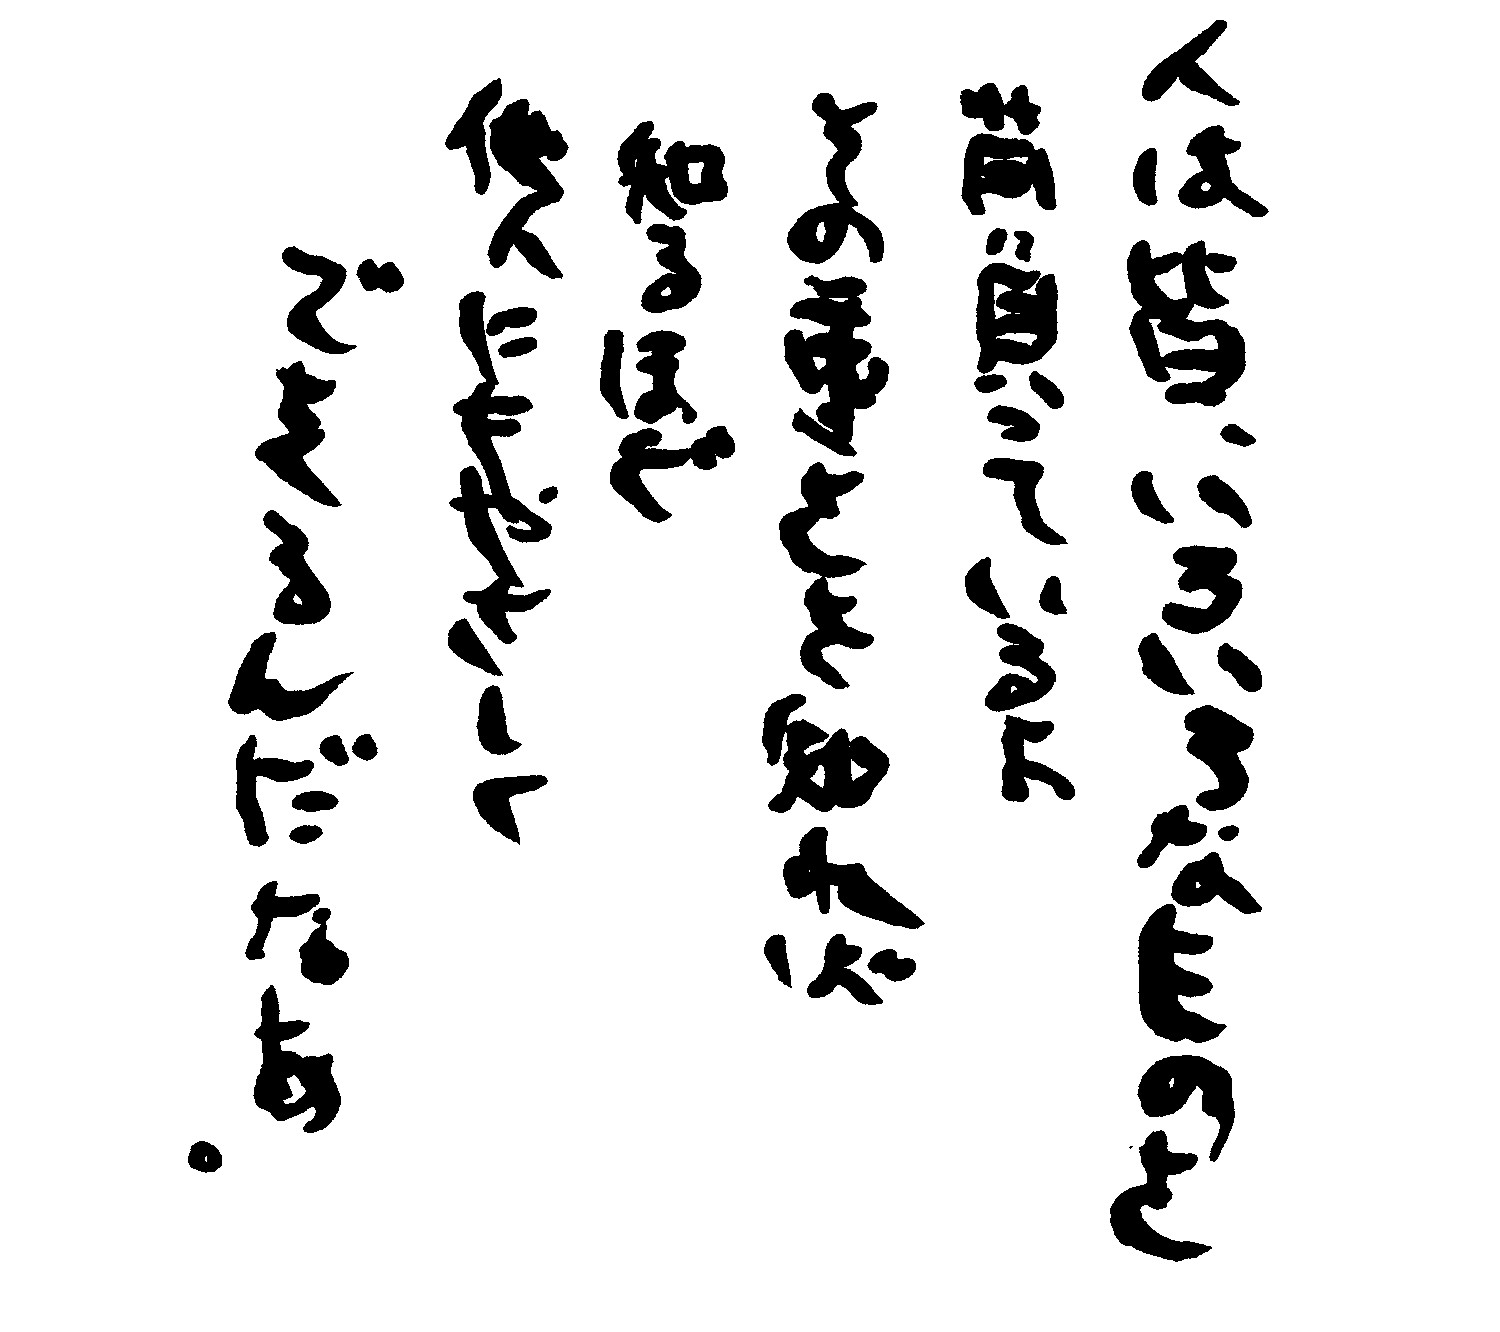 人は皆、いろいろなものを
背に負っているよ
その重さを知れば
知るほど
他人にもやさしく
できるんだなあ。